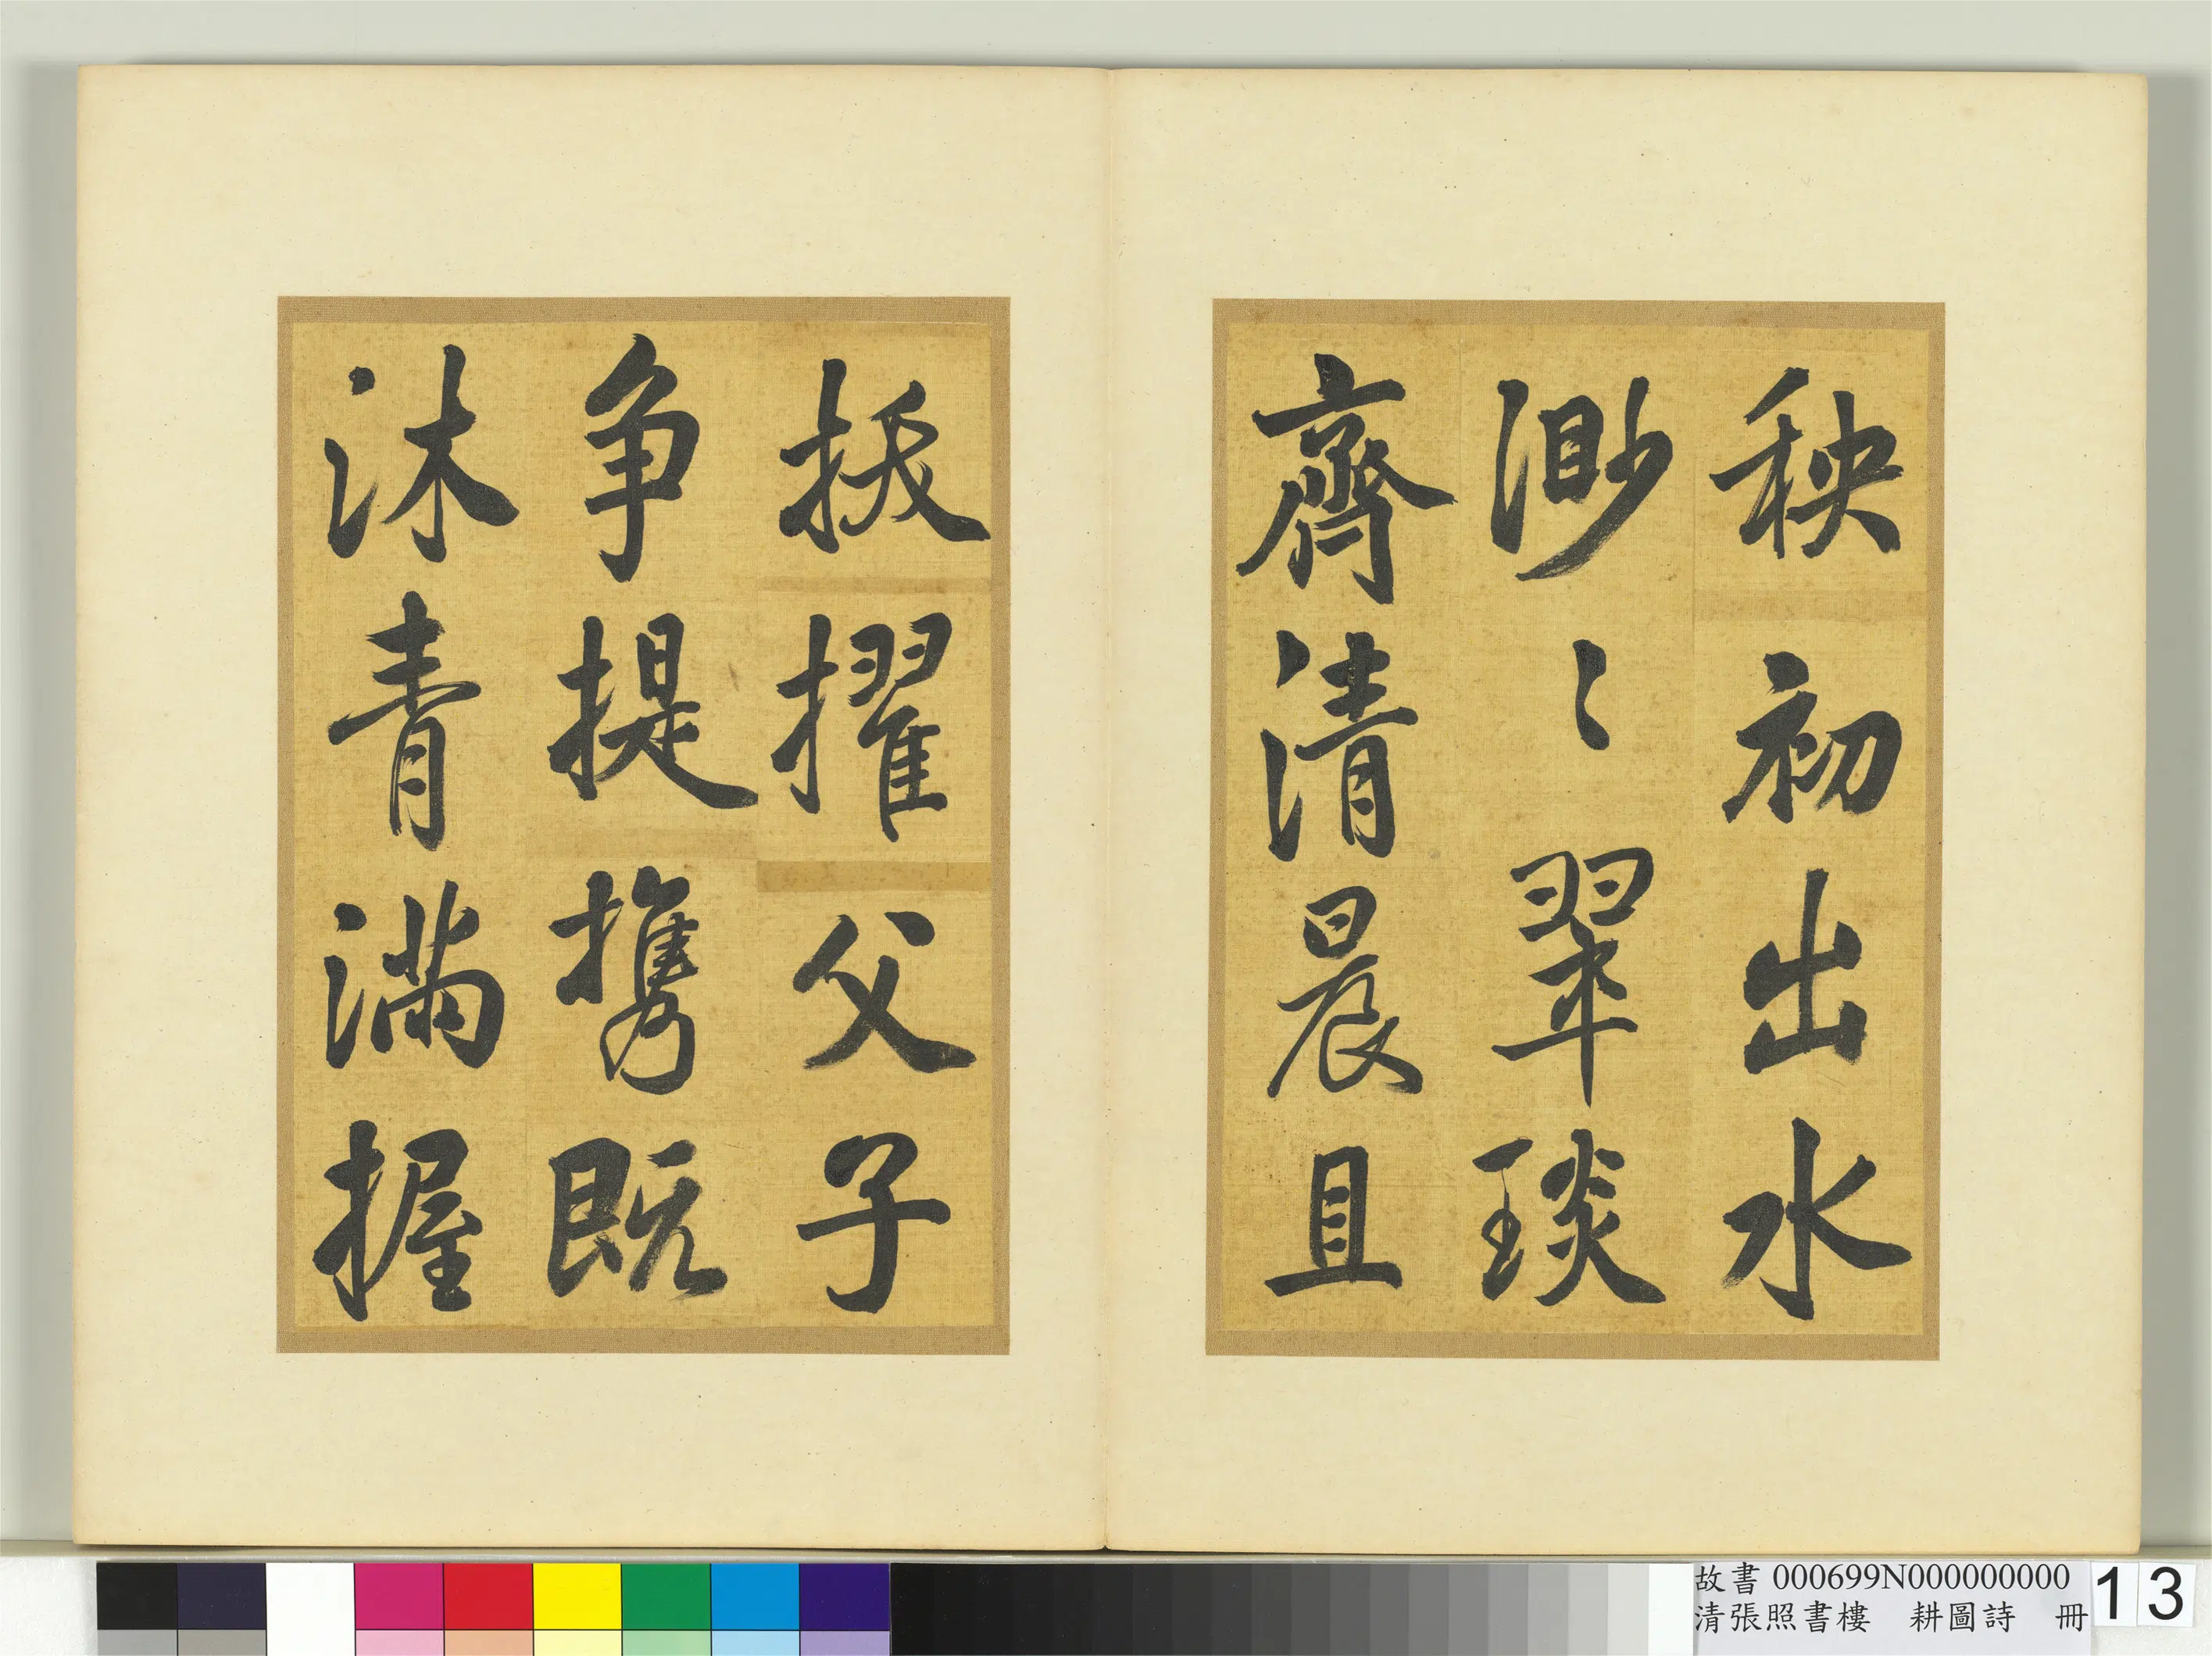 秧初出水
渺〻翠琰
齊清晨且
拔擢父子
争提攜既
沐青滿握
故書 000699N000000000
清張照書樓 耕圖詩 冊
13